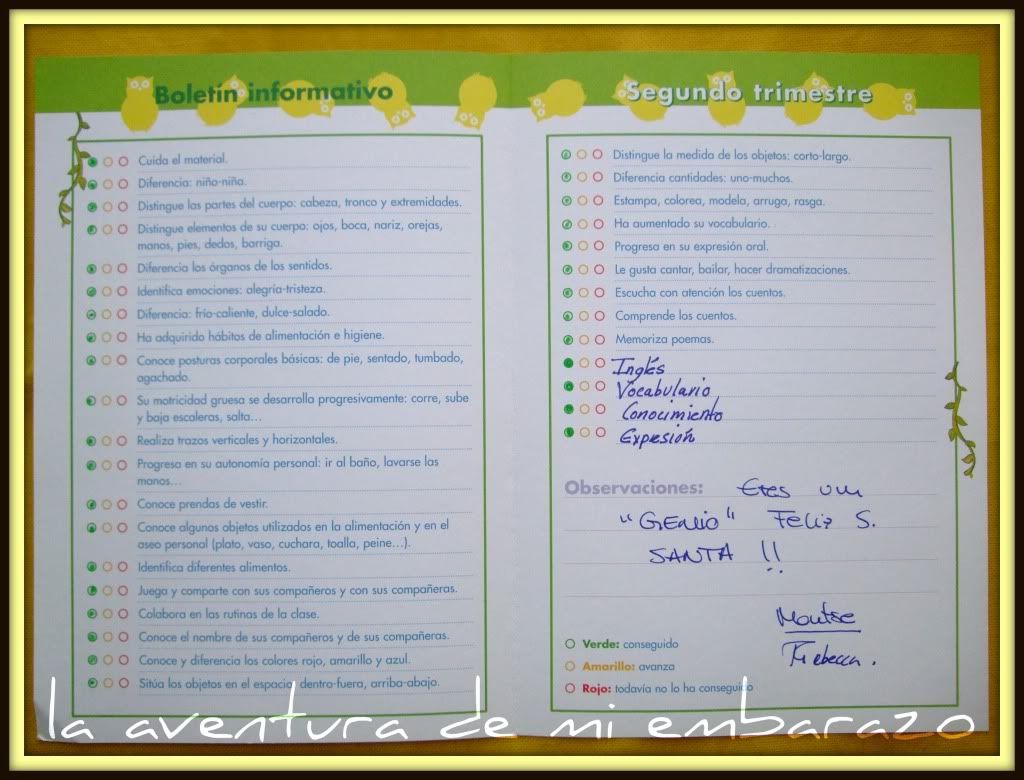 Boletín informativo
Cuida el material.
Diferencia: niño-niña.
Distingue las partes del cuerpo: cabeza, tronco y extremidades.
Distingue elementos de su cuerpo: ojos, boca, nariz, orejas,
manos, pies, dedos, barriga.
Diferencia los órganos de los sentidos.
Identifica emociones: alegría-tristeza.
Diferencia: frío-caliente, dulce-salado.
Ha adquirido hábitos de alimentación e higiene.
Conoce posturas corporales básicas: de pie, sentado, tumbado,
agachado.
Su motricidad gruesa se desarrolla progresivamente: corre, sube
y baja escaleras, salta...
Realiza trazos verticales y horizontales.
Progresa en su autonomía personal: ir al baño, lavarse las
manos...
Conoce prendas de vestir.
Conoce algunos objetos utilizados en la alimentación y en el
aseo personal (plato, vaso, cuchara, toalla, peine...).
Identifica diferentes alimentos.
Juega y comparte con sus compañeros y con sus compañeras.
Colabora en las rutinas de la clase.
Conoce el nombre de sus compañeros y de sus compañeras.
Conoce y diferencia los colores rojo, amarillo y azul.
Sitúa los objetos en el espacio: dentro-fuera, arriba-abajo.
Segundo trimestre
Distingue la medida de los objetos: corto-largo.
Diferencia cantidades: uno-muchos.
Estampa, colorea, modela, arruga, rasga.
Ha aumentado su vocabulario.
Progresa en su expresión oral.
Le gusta cantar, bailar, hacer dramatizaciones.
Escucha con atención los cuentos.
Comprende los cuentos.
Memoriza poemas.
Inglés
Vocabulario
Conocimiento
Expresión
Observaciones: Eres un
"GENIO" Feliz S.
SANTA !!
Montse
Rebecca.
Verde: conseguido
Amarillo: avanza
Rojo: todavía no lo ha conseguido
la aventura de mi embarazo